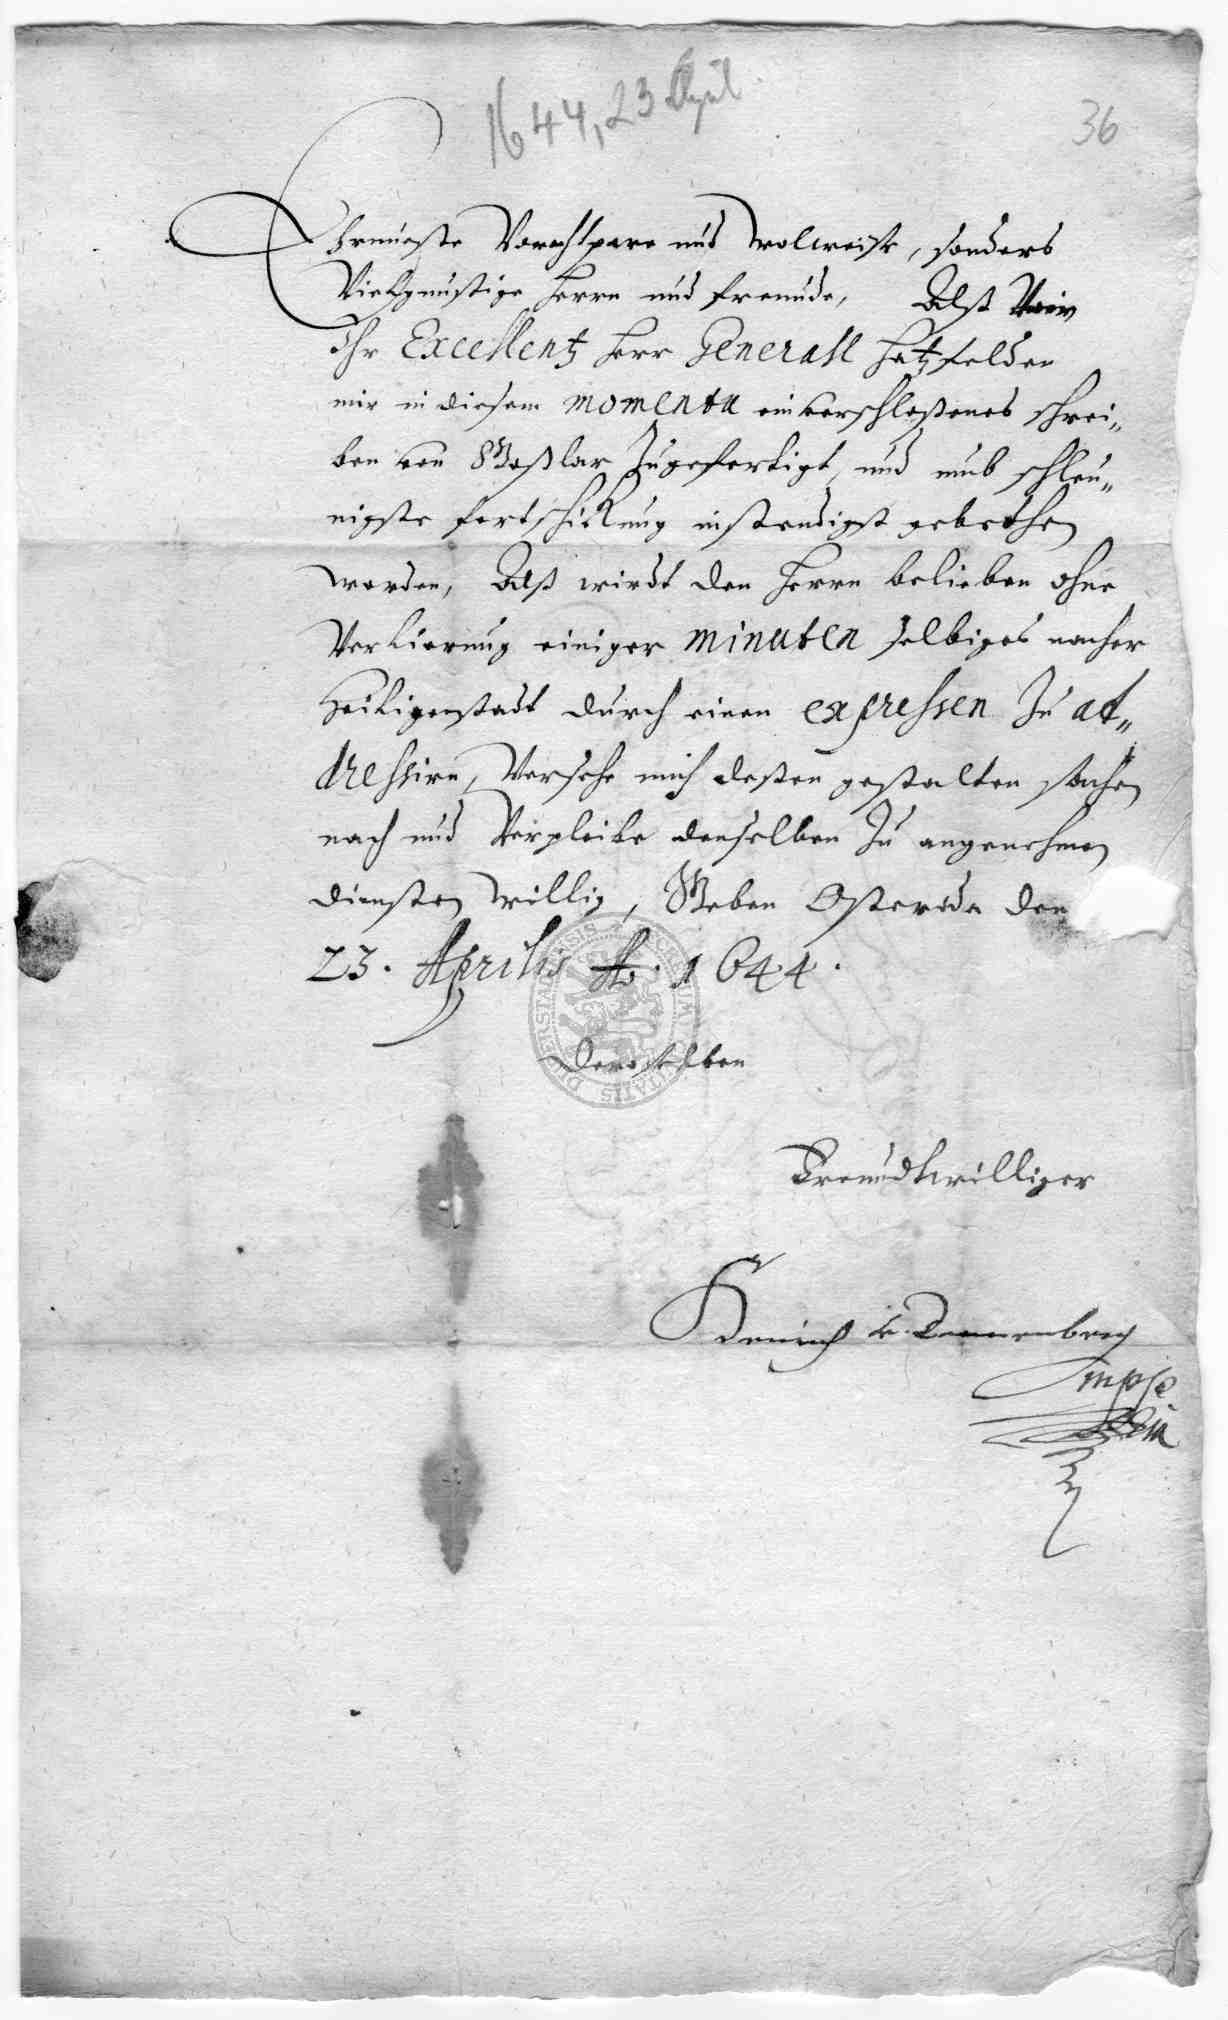 1644, 23 April
36
Ernueste Vorachtpare und Wolweise, sonders
Vielgünstige Herrn und freunde, Alß
Ihr Excellentz Herr Generall Hatzfelden
mir in diesem momento ein verschloßenes schrei„
ben von Goßlar Zugefertigt, und umb schleu„
nigste fortschickung instendigst gebethen
worden, Alß wirdt den Herrn belieben ohne
Verlierung einiger minuten selbiges nacher
Heiligenstadt durch einen expressen Zu at„
dressirn, Versehe mich deßen gestalten sachen
nach und Verpleibe denselben Zu angenehmen
diensten willig, Geben Osteroda den
23. Aprilis Ao. 1644.
Deroselben
Freundtwilliger
SIGILLUM CIVITATIS